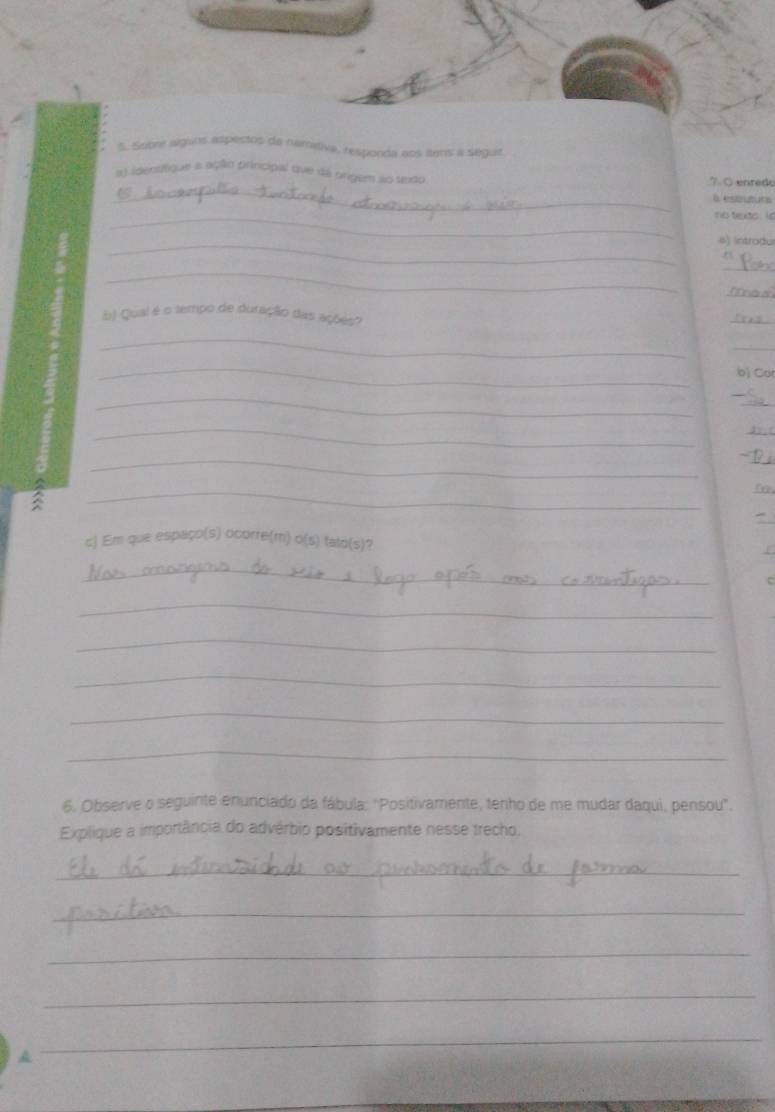 5. Sobre alguns aspectos da narrativa, responda aos itens a seguir.
a) Identifique a ação principal que dá origem ao texto.
tentando o rio
b) Qual é o tempo de duração das ações?
c) Em que espaço(s) ocorre(m) o(s) fato(s)?
Nas margens do rio e logo após nas correntezas.
6. Observe o seguinte enunciado da fábula: "Positivamente, tenho de me mudar daqui, pensou".
Explique a importância do advérbio positivamente nesse trecho.
Ele dá intensidade ao de forma
positiva.
Gêneros, Leitura e Análise • 6º ano
7. O enredo
A estrutura
no texto. Id
a) Introdu
b) Con